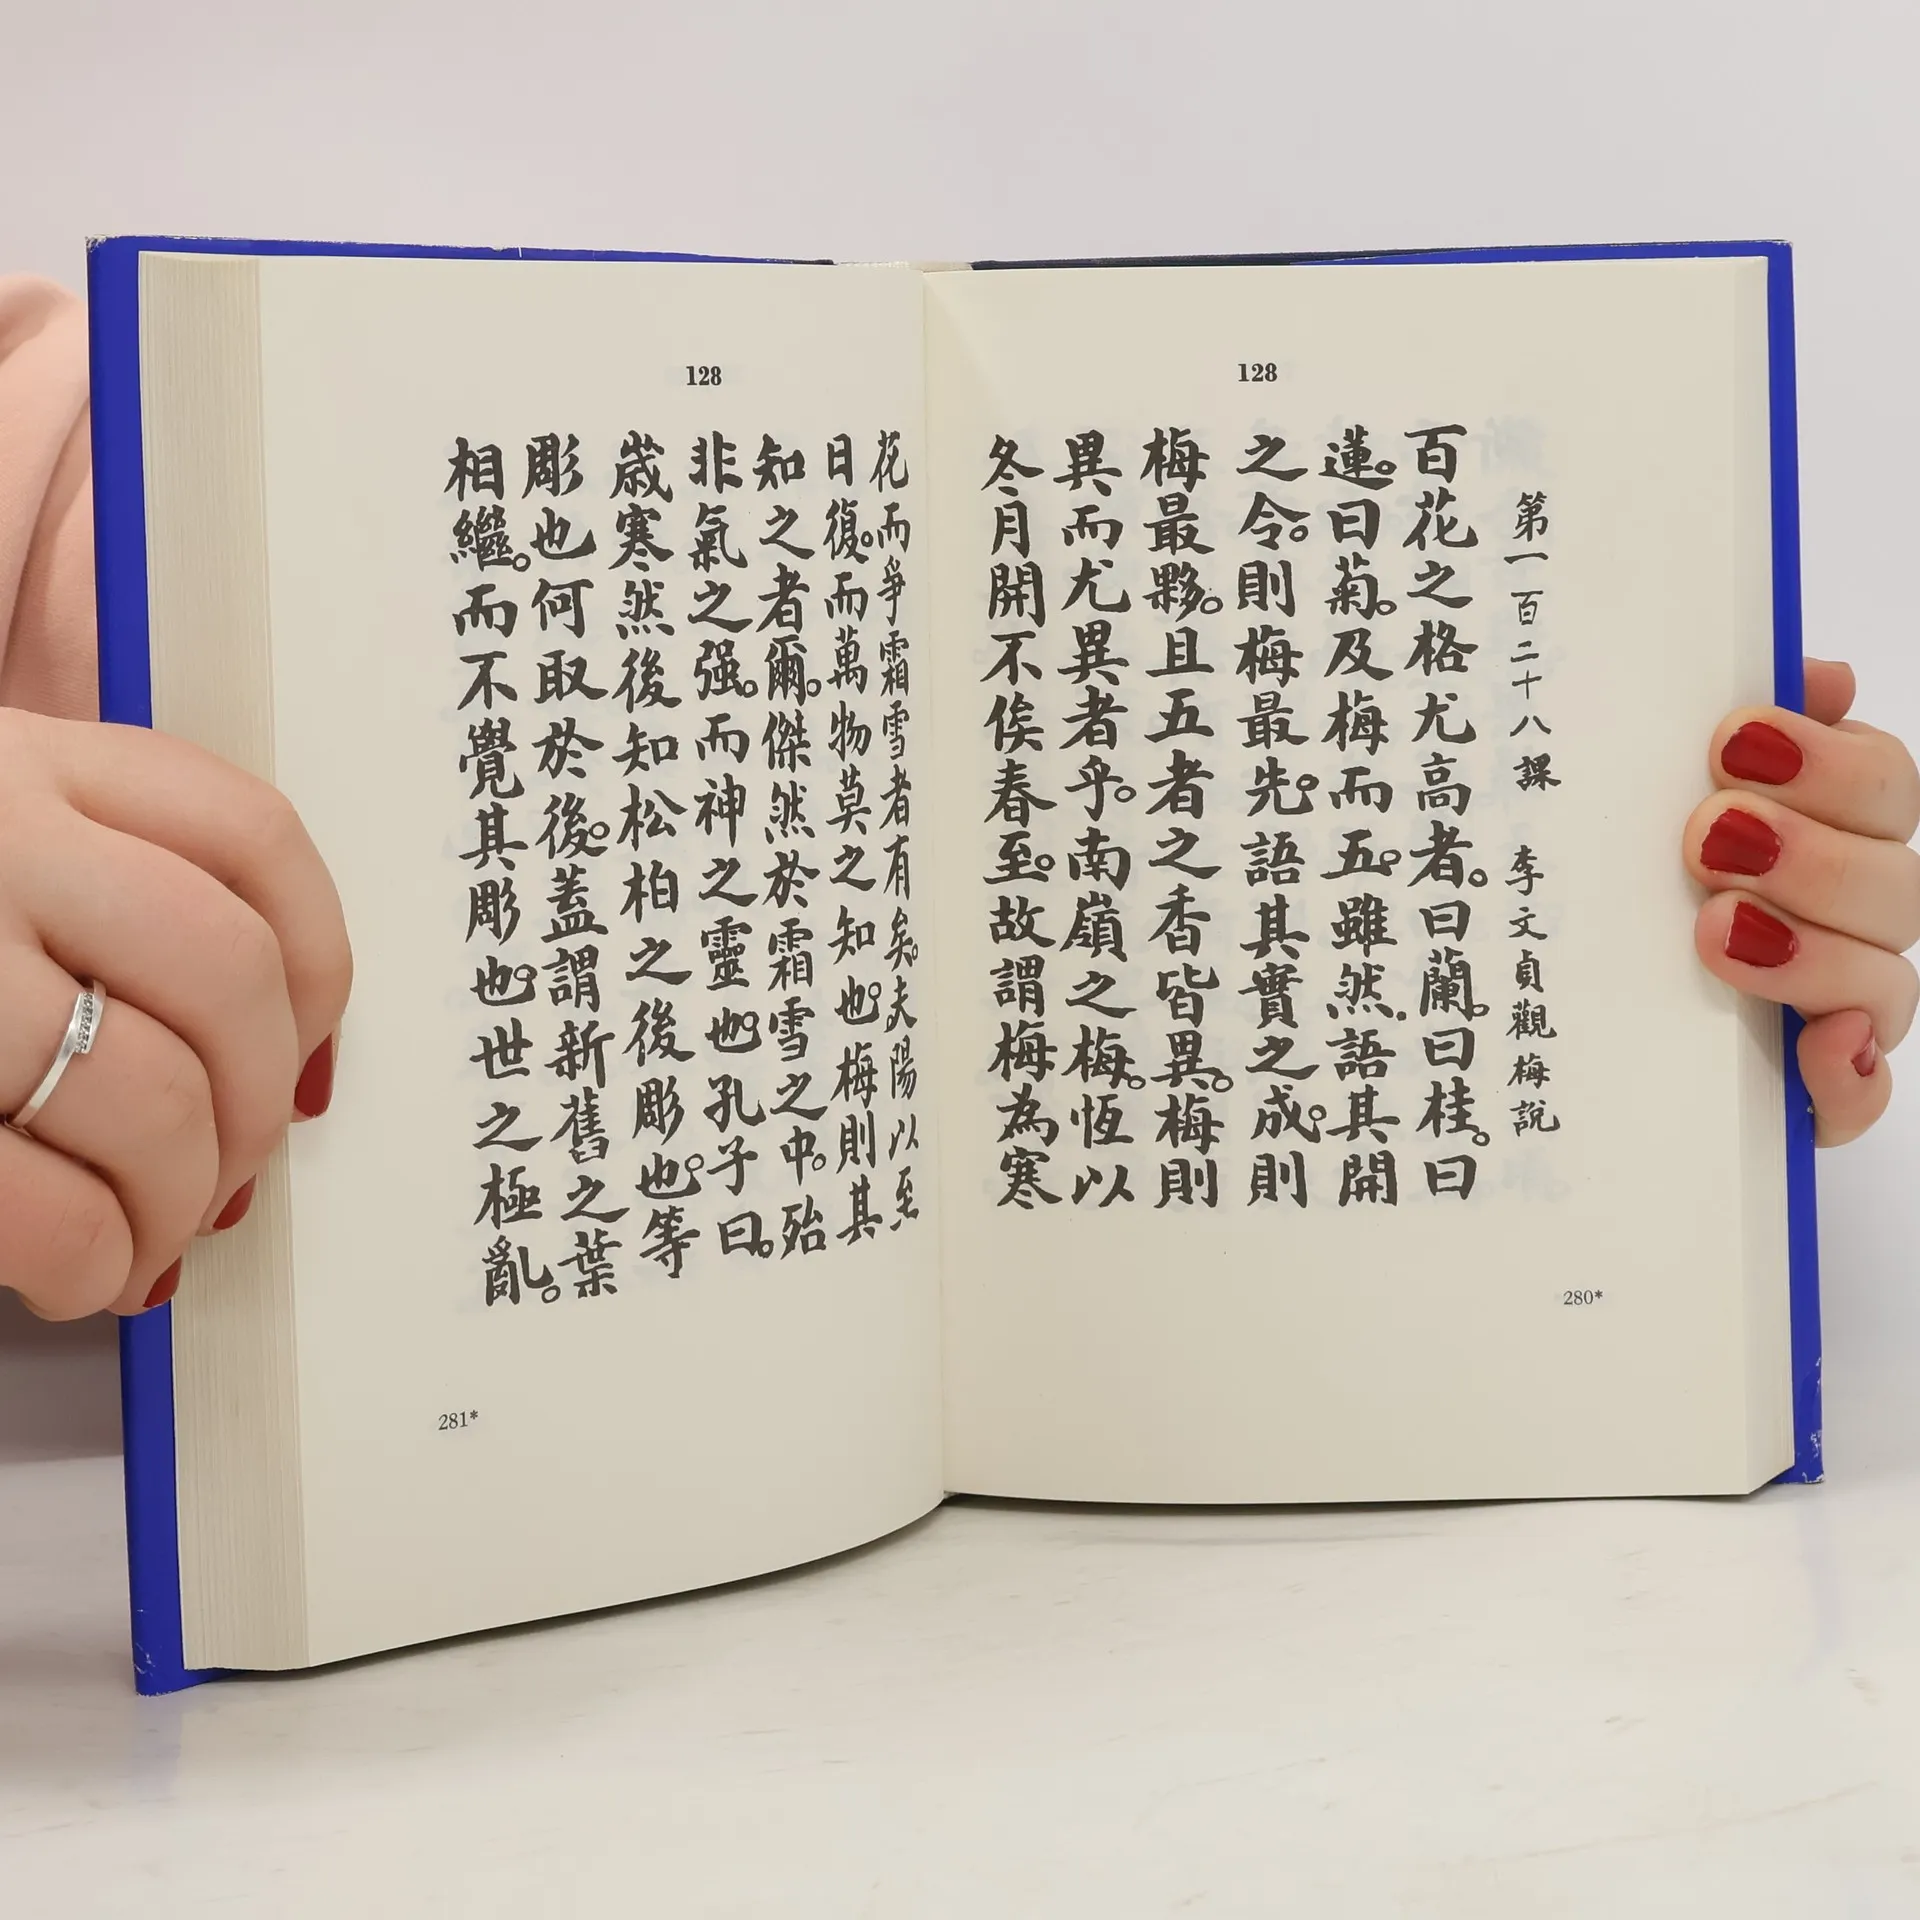 128
第一百二十八課 李文貞觀梅說
百花之格尤高者。曰蘭。曰桂。曰
蓮。曰菊。及梅而五。雖然。語其開
之令。則梅最先。語其實之成。則
梅最夥。且五者之香皆異。梅則
異而尤異者乎。南嶺之梅。恆以
冬月開不俟春至。故謂梅為寒
280*
128
花而爭霜雪者有矣。夫陽以至
日復。而萬物莫之知也。梅則其
知之者爾。傑然於霜雪之中。殆
非氣之强。而神之靈也。孔子曰。
歲寒然後知松柏之後彫也。等
彫也何取於後。蓋謂新舊之葉
相繼。而不覺其彫也。世之極亂。
281*